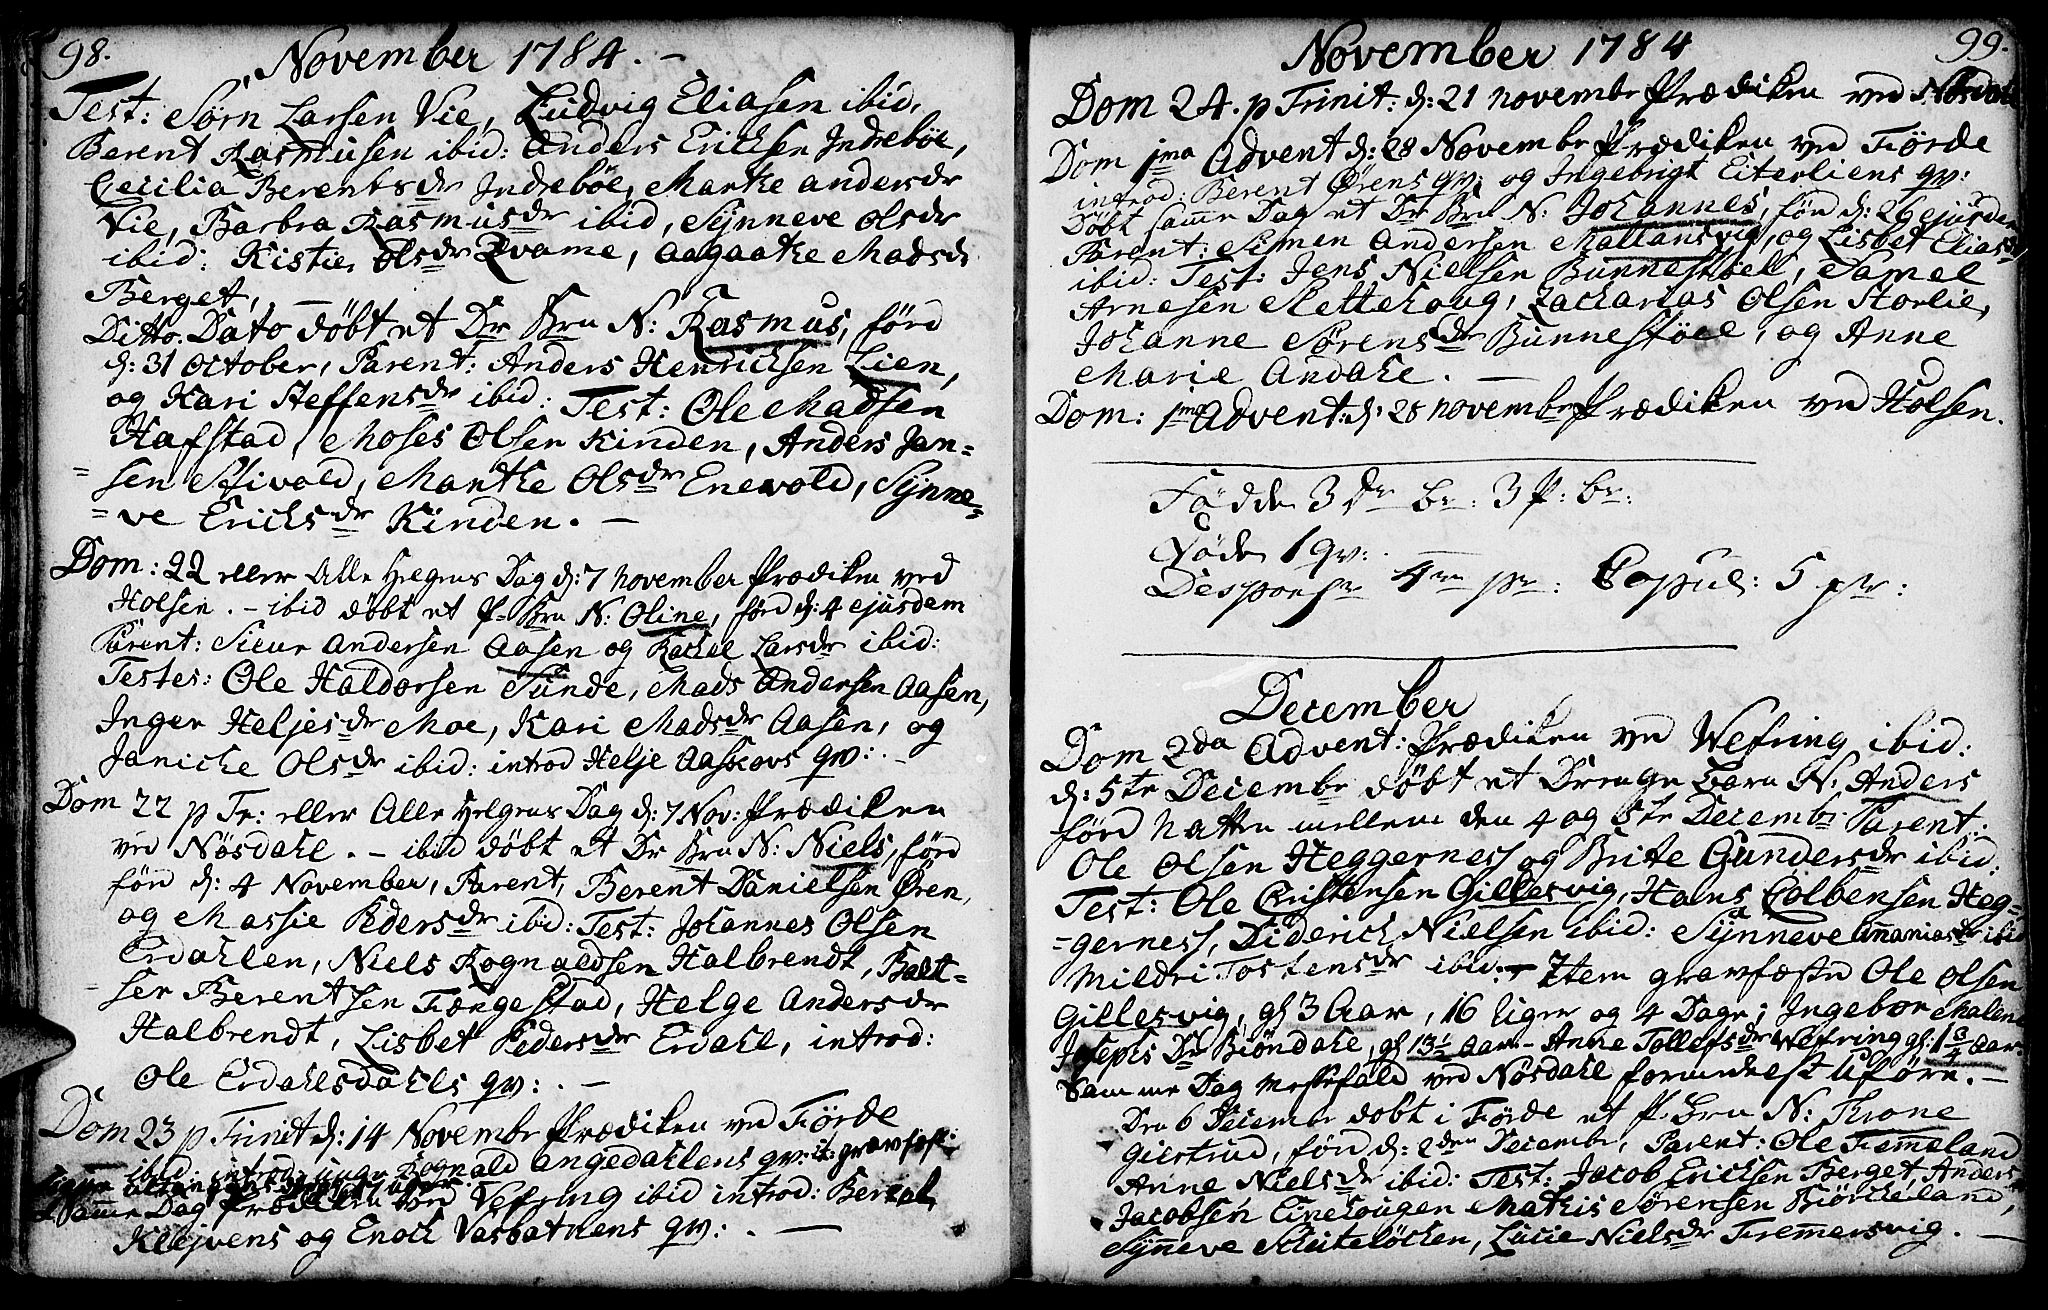 98.
November 1784. -
Test: Sørn Larsen Vie, Ludvig Eliasen ibid,
Berent Rasmusen ibid: Anders Ericksen Indrebøe,
Cecilia Berentsdr Indrebøe, Marthe andersdr
Vie, Barbra Rasmusdr ibid, Synneve olsdr
ibid: Kistie, olsdr Qvame, aagaathe Madsdr
Berget, -
Ditto Dato döbt et Dr Brn N: Rasmus, förd
d: 31 October, Parent: Anders Henrichsen Lien,
og Kari Steffensdr ibid: Test: Ole Madsen
Hafstad, Moses Olsen Kinden, Anders Jan=
=sen Schivold, Marthe Olsdr Enevold, Synne=
=ve Ericksdr Kinden. -
Dom: 22 eller Alle Helgens Dag d: 7 november Prædiken ved
Holsen. - ibid döbt et P. Brn N: Oline, förd d: 4 ejusdem
Parent: Sieur Andersen Aasen og Rachel Larsdr ibid:
Testes: Ole Haldorsen Sunde, Mads Andersen Aasen,
Inger Heljesdr Moe, Kari Madsdr Aasen, og
Janiche Olsdr ibid: introd Helje Aasseovs qv: -
Dom 22 p Tr: eller Alle Helgens Dag d: 7 Nov: Prædiken
ved Nøsdahl. - ibid döbt et Dr Brn N: Niels, förd
förd d: 4 November, Parent, Berent Danielsen Øren,
og Massie Pedersdr ibid: Test: Johannes Olsen
Erdahlen, Niels Rognaldsen Halbrendt, Balt=
=ser Berentsen Fiængestad, Helge Andersdr
Halbrendt, Lisbet Pedersdr Erdahl, introd:
Ole Erdahlsdahls qv: . -
Dom 23 p Trinit d: 14 November Prædiken ved Förde
ibid: introd: unge Rognald Angedahlens qv: it: gravfæst:
Samme Dag Prædiken ved Vefring ibid introd: Bercal
Klejvens og Enoch Vasbatnens qv: . -
99.
November 1784
Dom 24. p Trinit: d: 21 novembr Prædiken ved Nøsdal
Dom 1ma Advent d: 28 Novembr Prædiken ved Förde
introd: Berent Ørens qv: og Ingebrigt Eiterliens qv:
Döbt samme Dag et Dr Brn N: Johannes, förd d: 26 ejusdem
Parent: Simen Andersen Mallansvig, og Lisbet Eliasdr
ibid: Test: Jens Nielsen Bunnestöel, Samel
Arnesen Slettehoug, Zacharias Olsen Storlie,
Johanne Sørensdr Bunnestöel, og Anne
Marie Andahl. -
Dom: 1ma Advent: d: 28 novembr Prædiken ved Holsen.
Födde 3 Dr br: 3 P: br:
Döde 1 qv:
Desponser 4re pr: Copul: 5 pr:
December
Dom 2da Advent: Prædiken ved Vefring ibid:
d: 5te Decembr döbt et Drenge Barn N: Anders
förd natten mellem den 4 og 5te Decembr Parent:
Ole Olsen Heggerness og Brite Gundersdr ibid:
Test: Ole Christensen Gillesvig, Hans Colbensen Heg=
=gerness, Diderich Nielsen ibid: Synneve Ananiasdr ibid
Mildri Tostensdr ibid. - Item gravfæste Ole Olsen
Gillesvig, gl 3 Aar, 16 Uger og 4 Dage; Ingebor Malene
Josephs Dr Biöndahl, gl 13½ Aar - Anne Tollefsdr Wefring gl: 1¾ Aar.
Samme Dag Messefald ved Nøsdahl formedelst Uföre. -
Den 6 Decembr döbt i Förde et P. Brn N: Throne
Giertrud, förd d: 2den Decembr, Parent: Ole Fiemeland
Anne Nielsdr ibid: Test: Jacob Ericksen Berget, Anders
Jacobsen Einehougen Mathis Sørensen Biörcheland,
Synneve Schitelöchen, Lucie Nielsdr Fremmersvig. -